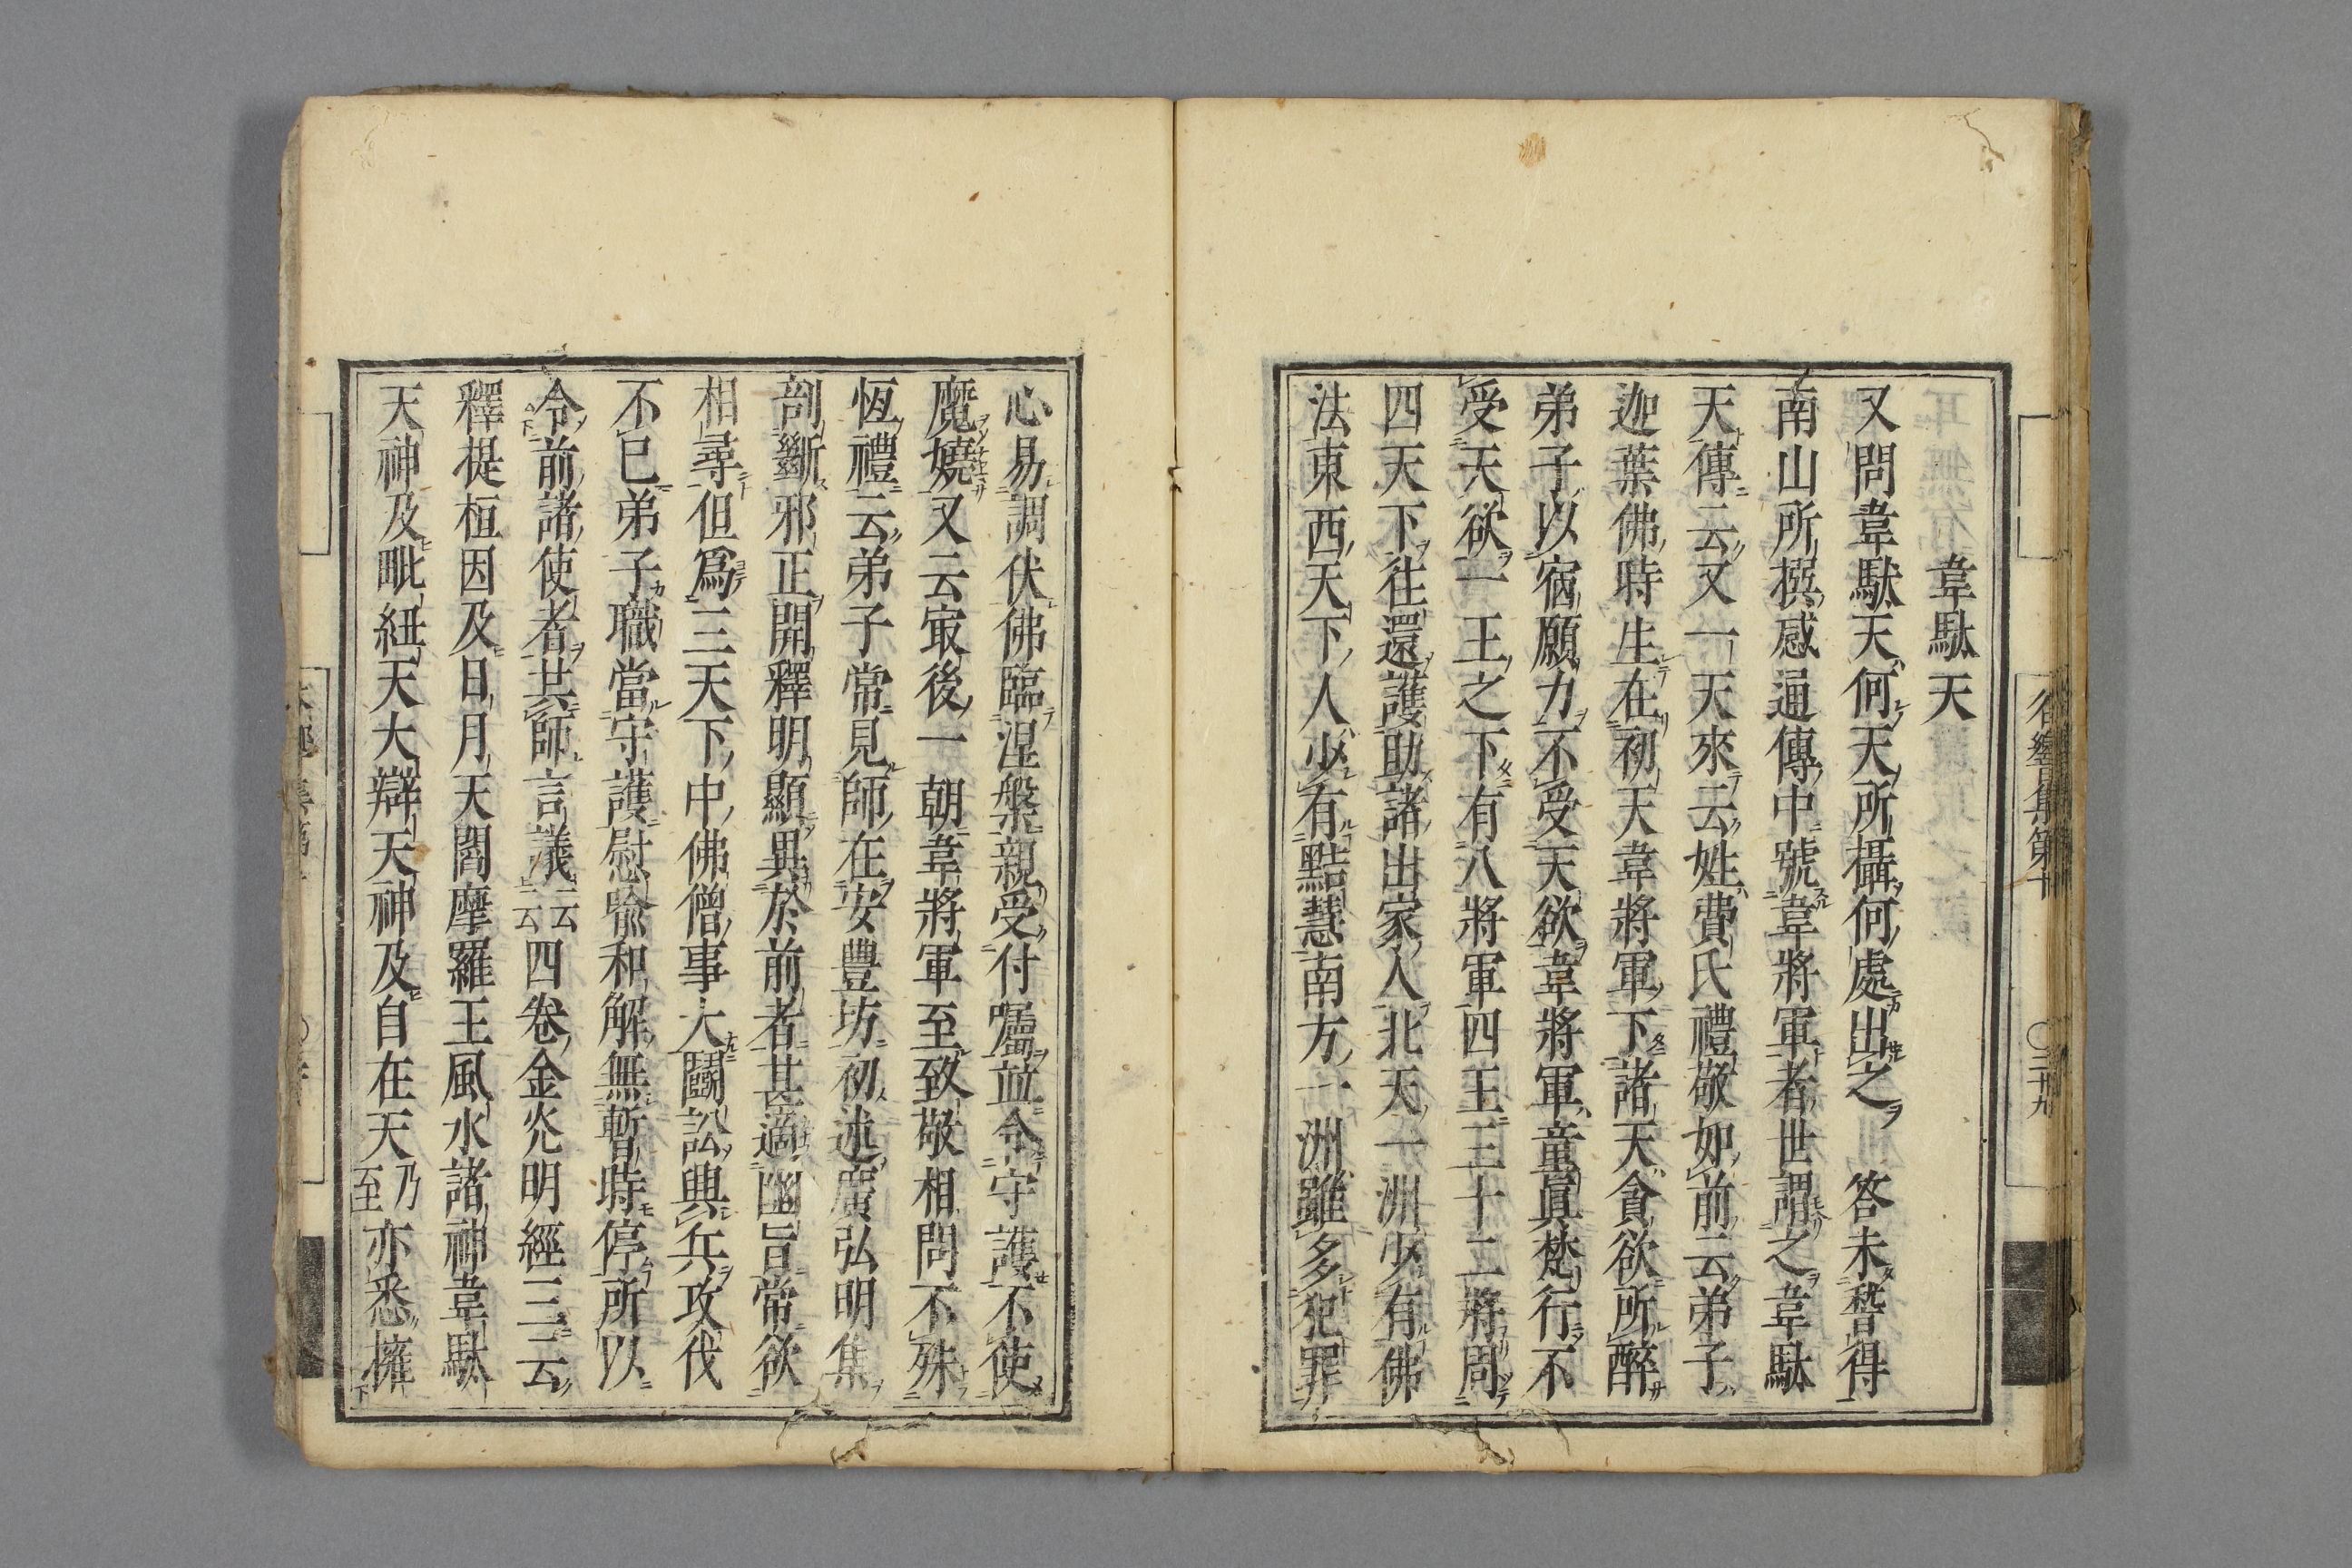 韋駄天
又問韋駄天何天所攝何處出之　答未詧得
南山所撰感通傳中號韋將軍者世謂之韋駄
天傳云又一天來云姓費氏禮敬如前云弟子
迦葉佛時生在初天韋將軍下諸天貪欲所醉
弟子以宿願力不受天欲韋將軍童眞梵行不
受天欲一王之下有八將軍四王三十二將周
四天下往還護助諸出家人北天一洲少有佛
法東西天下人少有黠慧南方一洲雖多犯罪
心易調伏佛臨涅槃親受付囑並令守護不使
魔嬈又云㝡後一朝韋將軍至致敬相問不殊
恆禮云弟子常見師在安豐坊初述廣弘明集
剖斷邪正開釋明顯異於前者甚適幽旨常欲
相尋但爲三天下中佛僧事大鬬訟興兵攻伐
不已弟子職當守護慰喩和解無暫時停所以
令前諸使者共師言議云云四卷金光明經三云
釋提桓因及日月天閻摩羅王風水諸神韋駄
天神及毗紐天大辯天神及自在天乃至亦悉擁
谷響集第十
〇二十九